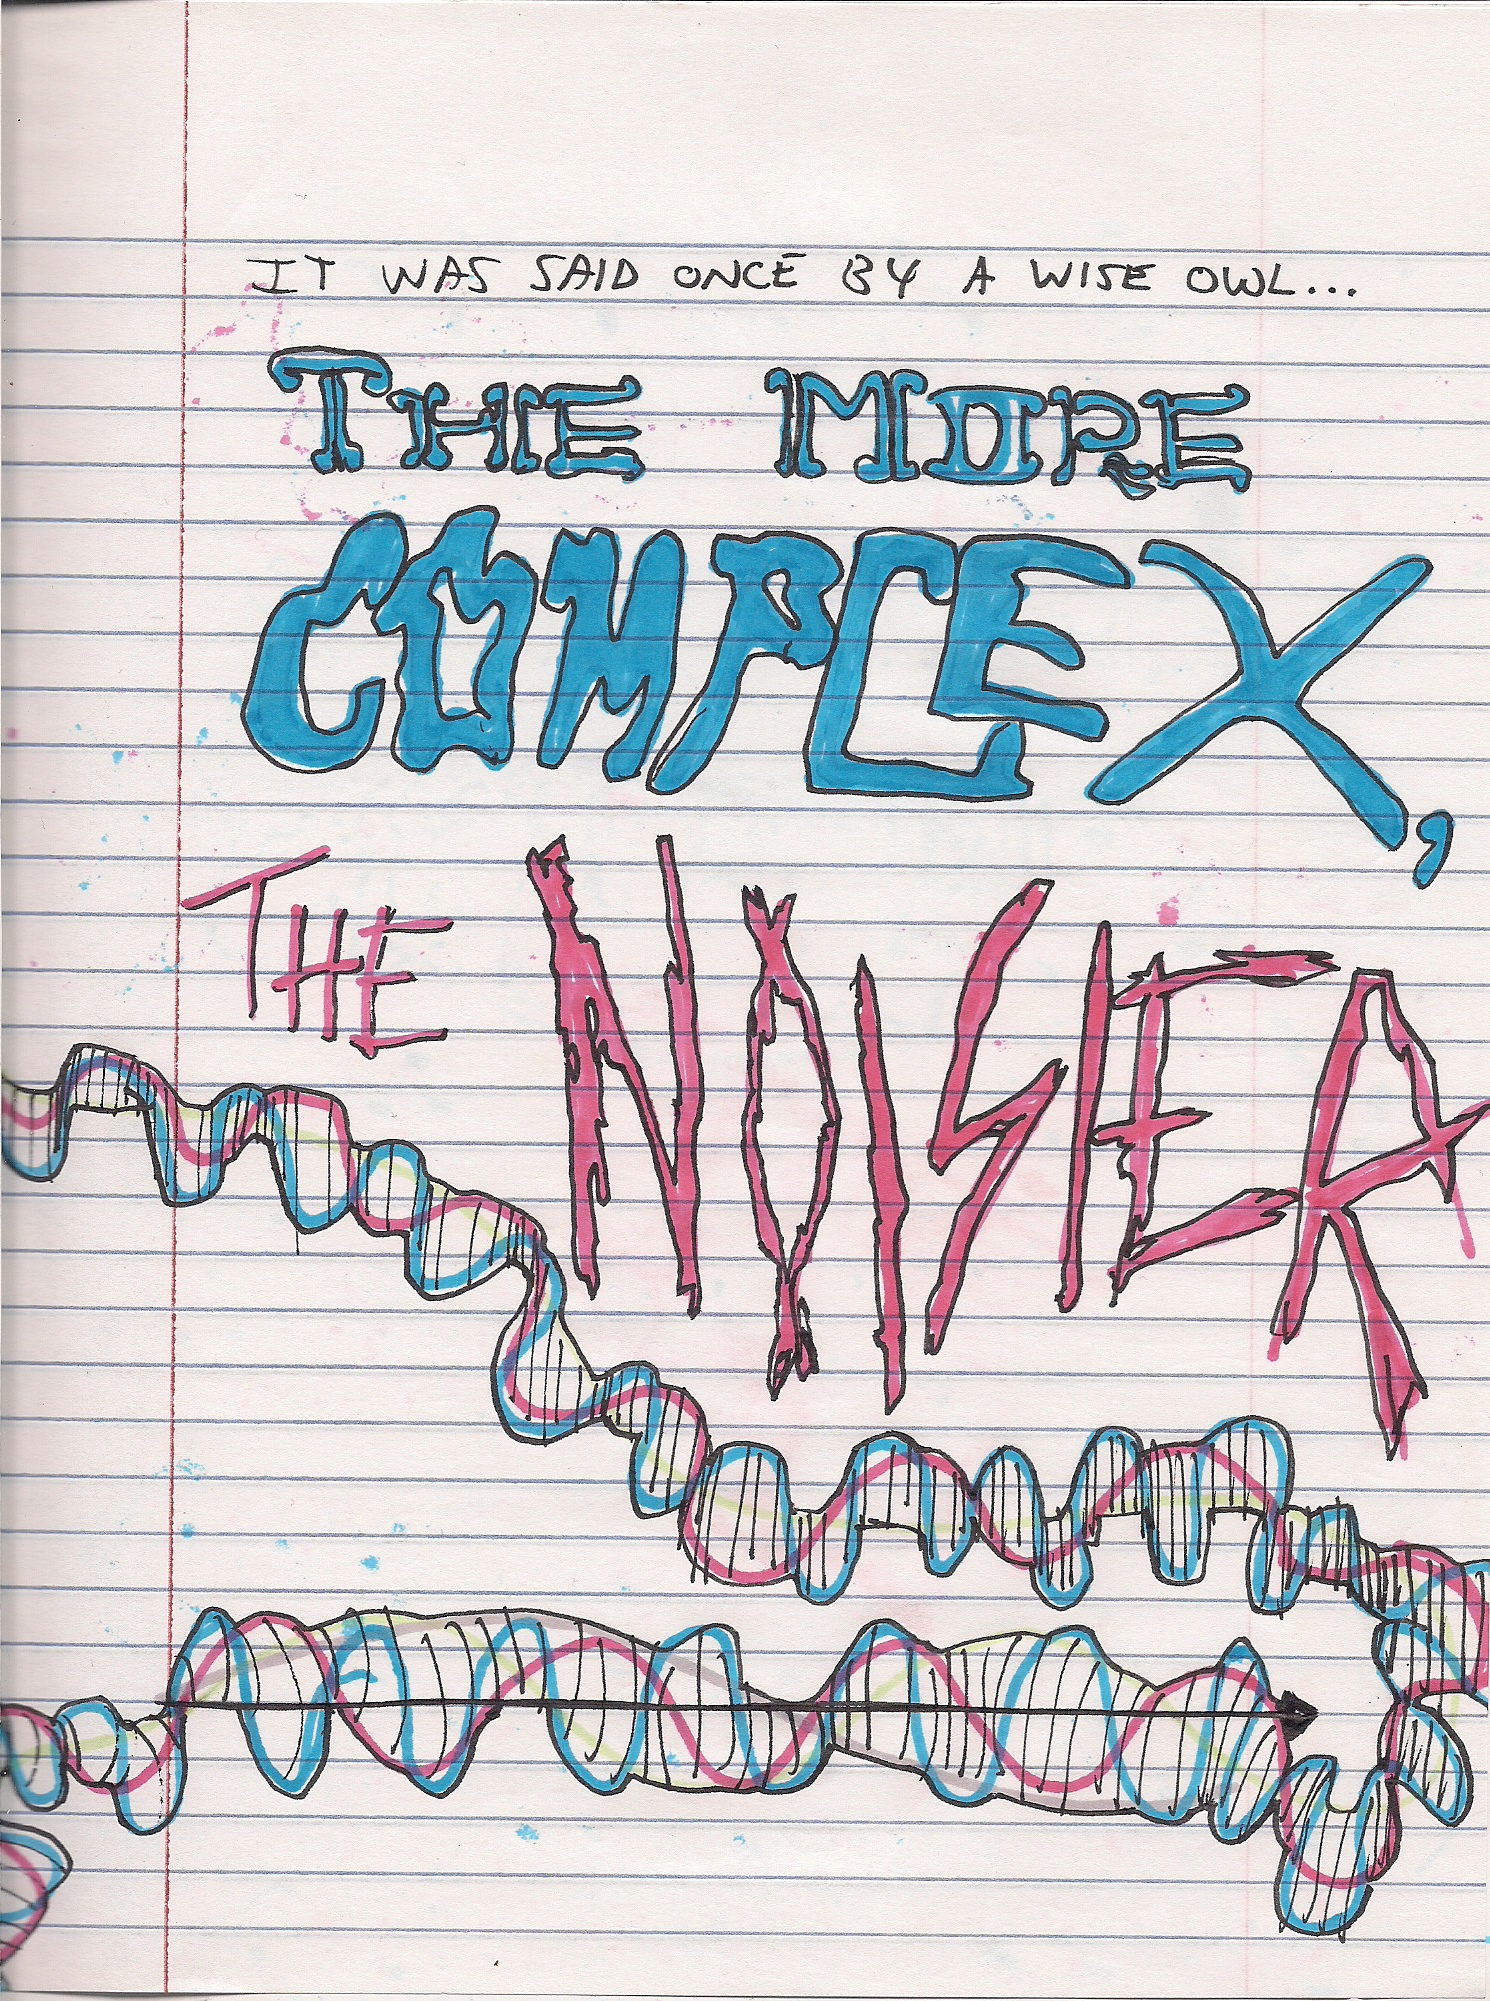 IT WAS SAID ONCE BY A WISE OWL...
THE MORE
COMPLEX,
THE NOISIER